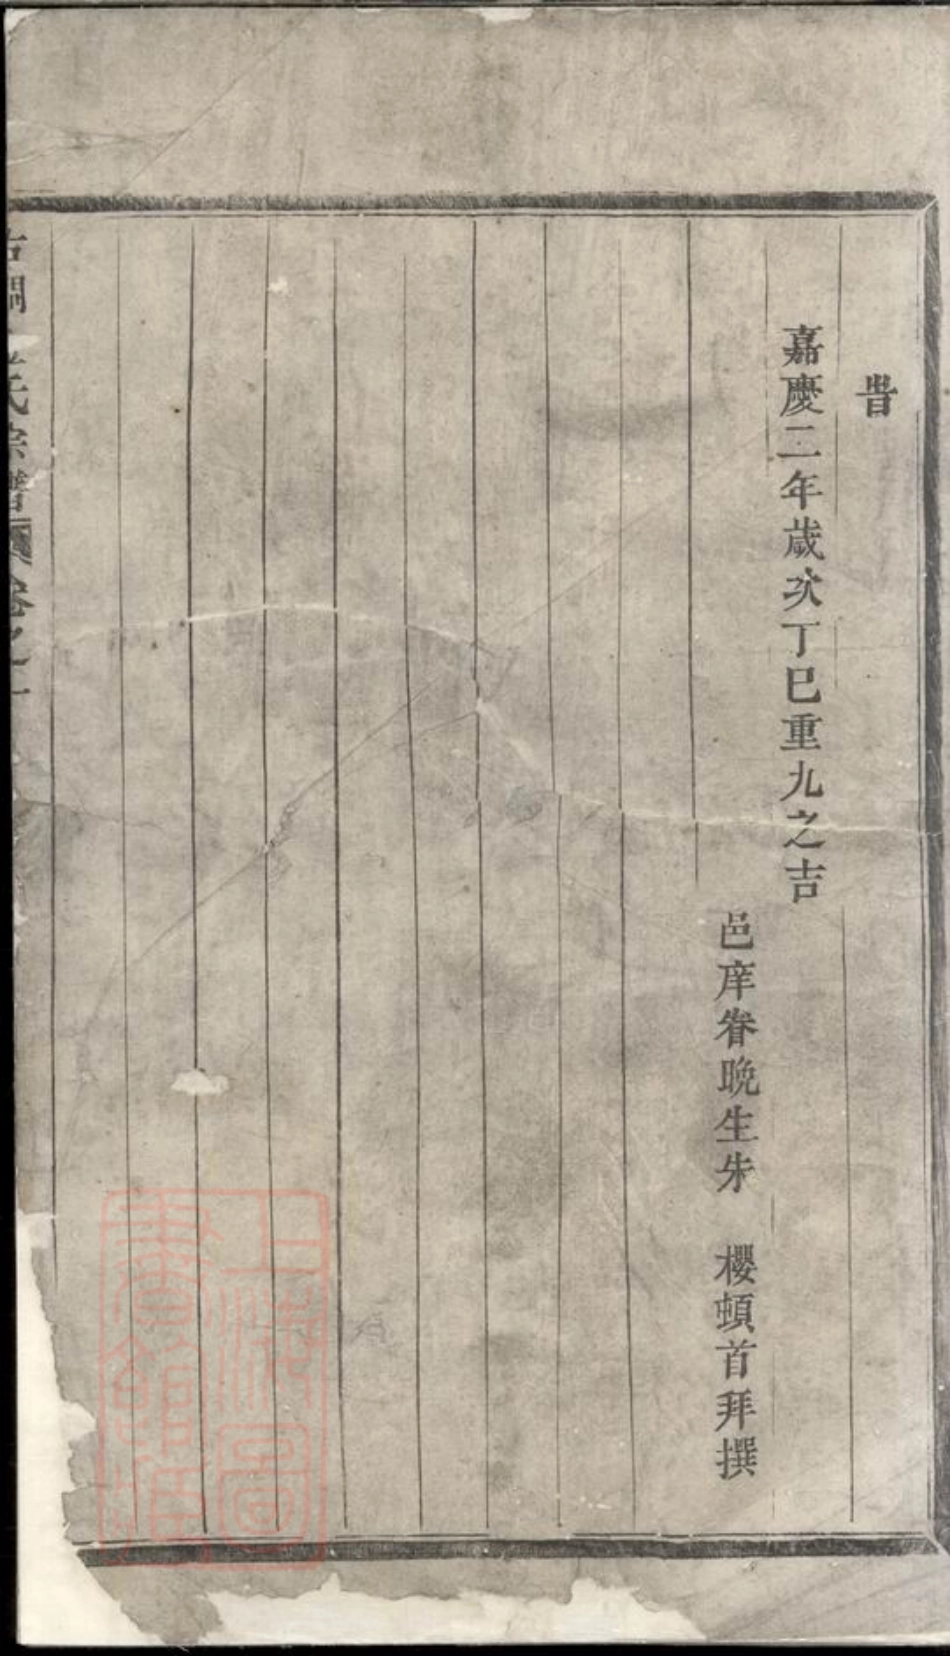 旹
嘉慶二年歲次丁巳重九之吉
邑庠眷晚生朱 櫻頓首拜撰
氏宗譜 卷之一
上海圖書館藏